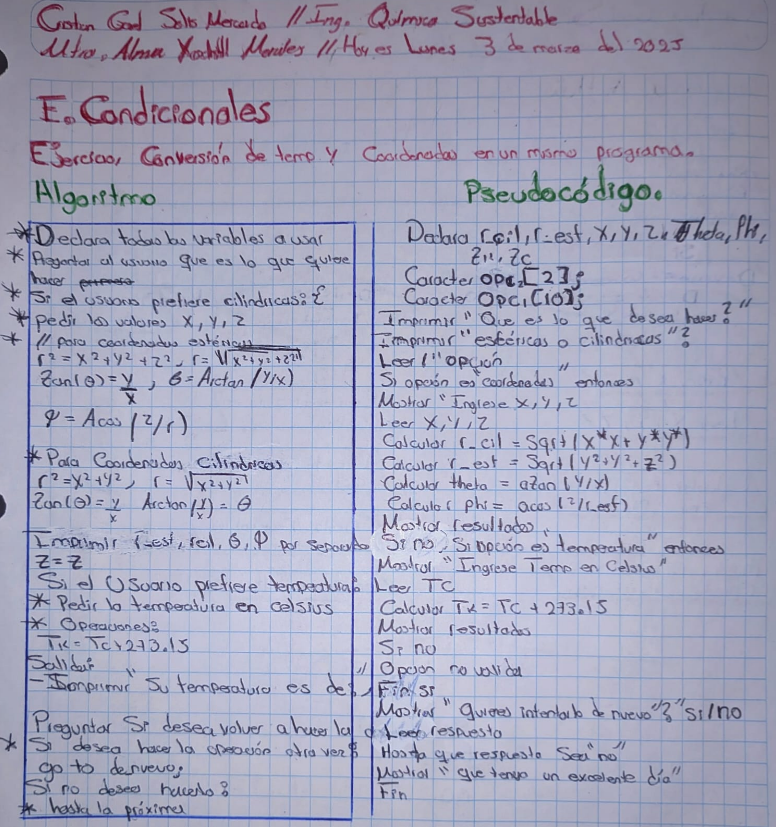 Solis Mercado // Ing. Química Sustentable
Mtra. Alma Xochitl Morales // Hoy es Lunes 3 de marzo del 2025
E. Condicionales
Ejercicio, Conversión de temp y Coordenadas en un mismo programa.
Algoritmo
* Declara todas las variables a usar
* Preguntar al usuario que es lo que quiere
hacer
* Si el usuario prefiere cilindricas: {
* pedir los valores X, Y, Z
* // para coordenadas esféricas
r² = x² + y² + z², r = √(x²+y²+z²)
Tan(θ) = y/x, θ = Arctan (y/x)
φ = Acos (z/r)
* Para Coordenadas cilindricas
r² = x² + y², r = √x²+y²
Tan(θ) = y/x Arctan(y/x) = θ
Imprimir r_est, rcil, θ, φ por separado
Z = Z
Si el Usuario prefiere temperatura:
* Pedir la temperatura en celsius
* Operaciones:
TK = TC + 273.15
Salida:
- Imprimir "Su temperatura es de: "
Preguntar Si desea volver a hacerla
* Si desea hacer la operación otra vez:
go to denuevo;
Si no desea hacerlo:
* hasta la próxima
Pseudocódigo.
Declara r_cil, r_est, X, Y, Z, Theta, Phi,
Zk, Zc
Caracter opc[2];
Caracter Opc1[10];
Imprimir "Que es lo que desea hacer?"
Imprimir "esféricas o cilindricas"?
Leer "opción"
Si opción es "coordenadas" entonces
Mostrar "Ingrese X, Y, Z
Leer X, Y, Z
Calcular r_cil = Sqrt (X*X + Y*Y*)
Calcular r_est = Sqrt (Y²+Y²+Z²)
Calcular theta = aTan (Y/X)
Calcular phi = acos (z/r_esf)
Mostrar resultados
Si no, Si opción es temperatura" entonces
Mostrar "Ingrese Temp en Celsius"
Leer TC
Calcular TK = TC + 273.15
Mostrar resultados
Si no
Opcion no valida
Fin si
Mostrar "quieres intentarlo de nuevo"?" si/no
Leer respuesta
Hasta que respuesta Sea "no"
Mostrar "que tenga un excelente día"
Fin